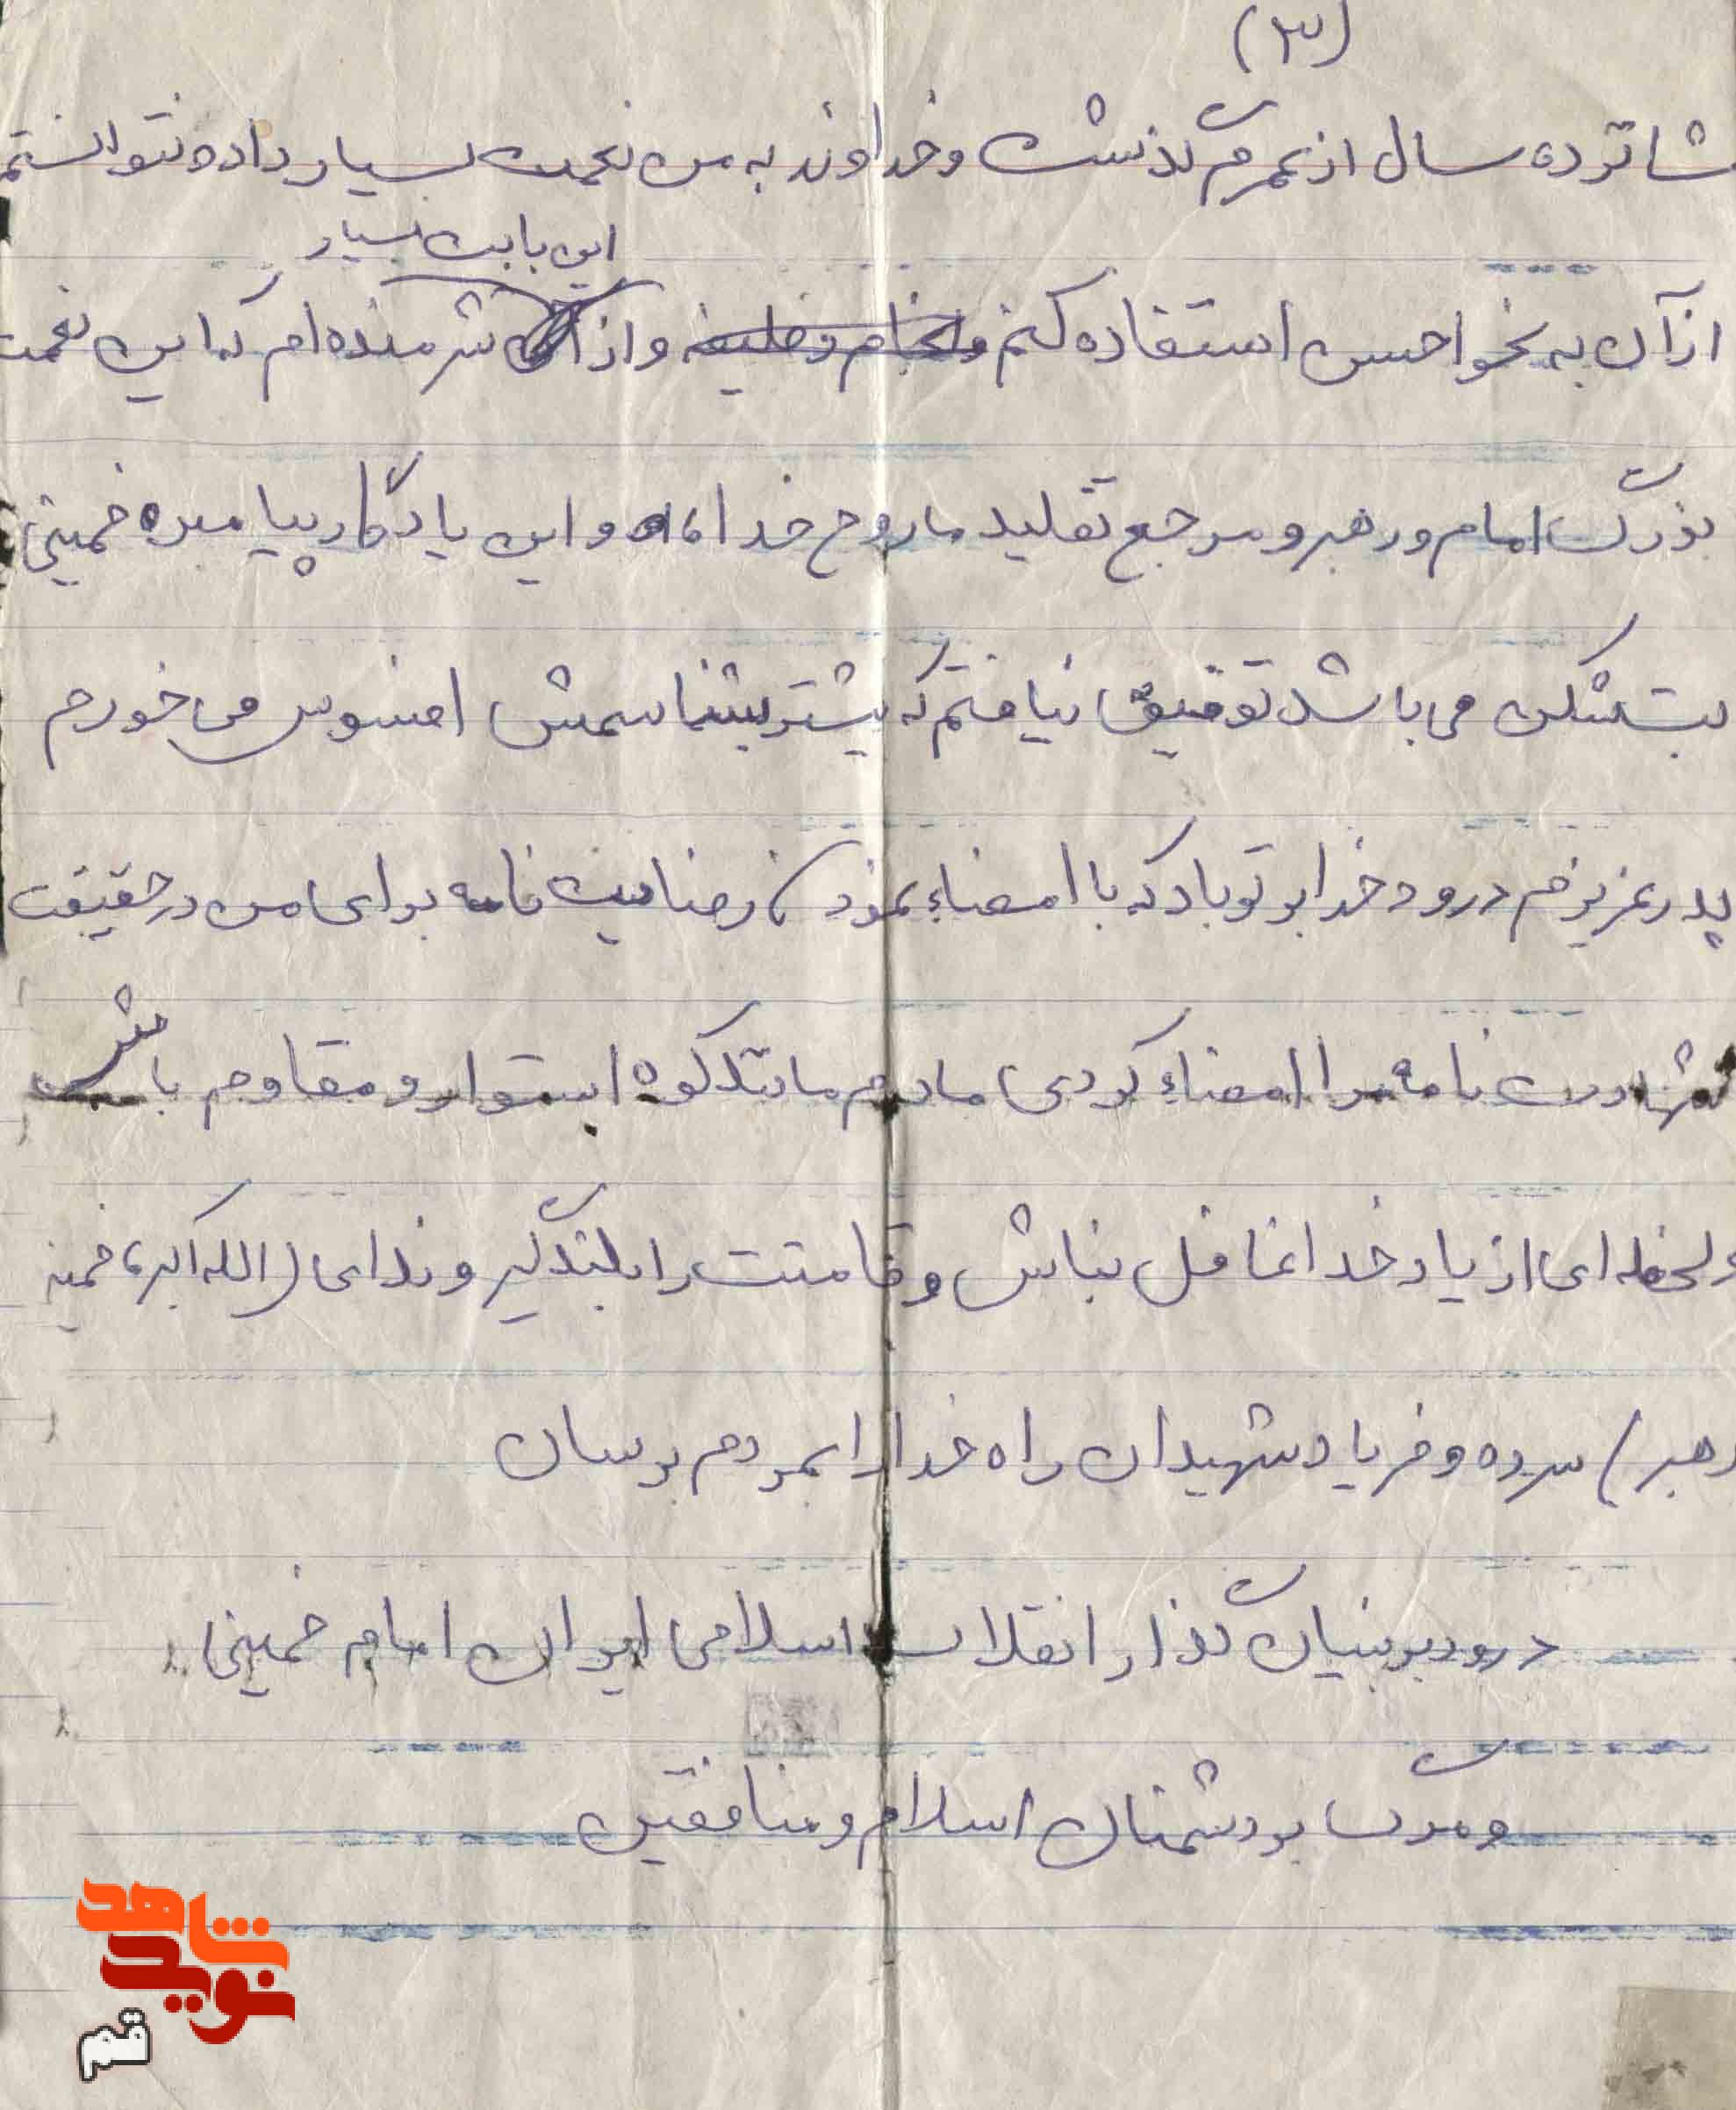 (۳)
شانزده سال از عمرم گذشت و خداوند به من نعمت بسیار داده نتوانستم
این بابت بسیار
از آن به نحو احسن استفاده کنم وانجام وظیفه و از شرمنده ام که این نعمت
بزرگ امام و رهبر و مرجع تقلید ما روح خدا و این یادگار پیامبر خمینی
بت شکن می باشد توفیق نیافتم که بیشتر بشناسمش افسوس می خورم
پدر عزیزم درود خدا بر تو باد که با امضاء نمودن رضایت نامه برای من در حقیقت
شهادت نامه مرا امضاء کردی مادرم مانند کوه استوار و مقاوم باش
و لحظه ای از یاد خدا غافل نباش و قامتت را بلند گیر و ندای (الله اکبر، خمینی
رهبر) سرده و فریاد شهیدان راه خدا را بمردم برسان
درود بر بنیان گذار انقلاب اسلامی ایران امام خمینی
و مرگ بر دشمنان اسلام و منافقین
شاهد
نوید
قم